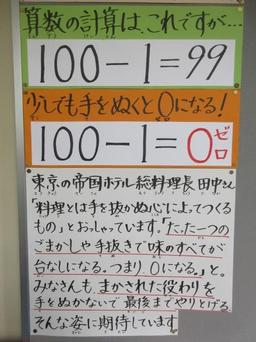 算数の計算は、これですが…
100-1=99
少しでも手をぬくと0になる!
100-1=0ゼロ
東京の帝国ホテル総料理長田中さん
「料理とは手を抜かぬ心によってつくる
もの」とおっしゃています。「たった一つの
ごまかしや手抜きで味のすべてが
台なしになる。つまり、0になる。」と。
みなさんも、まかされた役わりを
手をぬかないで最後までやりとげる
そんな姿に期待しています